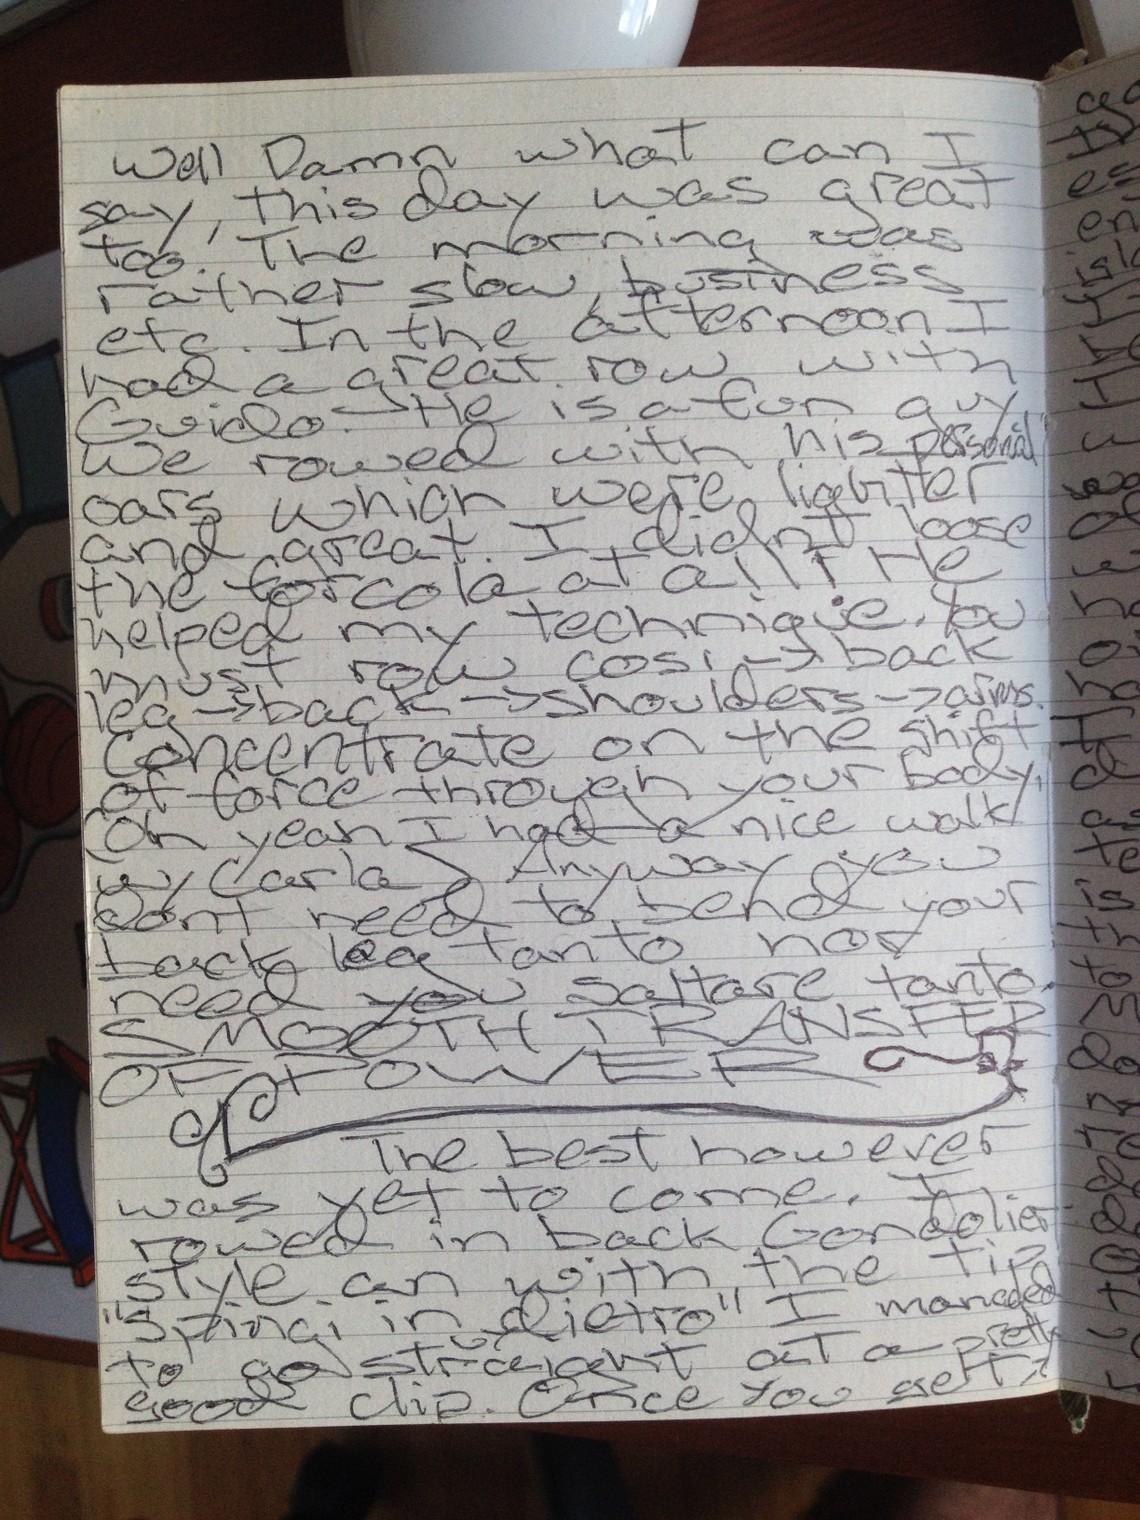 Well Damn what can I
say, this day was great
too. The morning was
rather slow, business
etc. In the afternoon I
had a great row with
Guido. → He is a fun guy
We rowed with his personal
oars which were lighter
and great. I didn't loose
the forcola at all! He
helped my technique. You
must row cosi → back
leg → back → shoulders → arms.
Concentrate on the shift
of force through your body.
(Oh yeah I had a nice walk
w/ Carla) Anyway you
dont need to bend your
back leg tanto nor
need you saltare tanto.
SMOOTH TRANSFER
OF POWER
The best however
was yet to come. I
rowed in back Gondolier
style an with the tip
"Spingi in dietro" I managed
to go straight at a pretty
good clip. Once you get